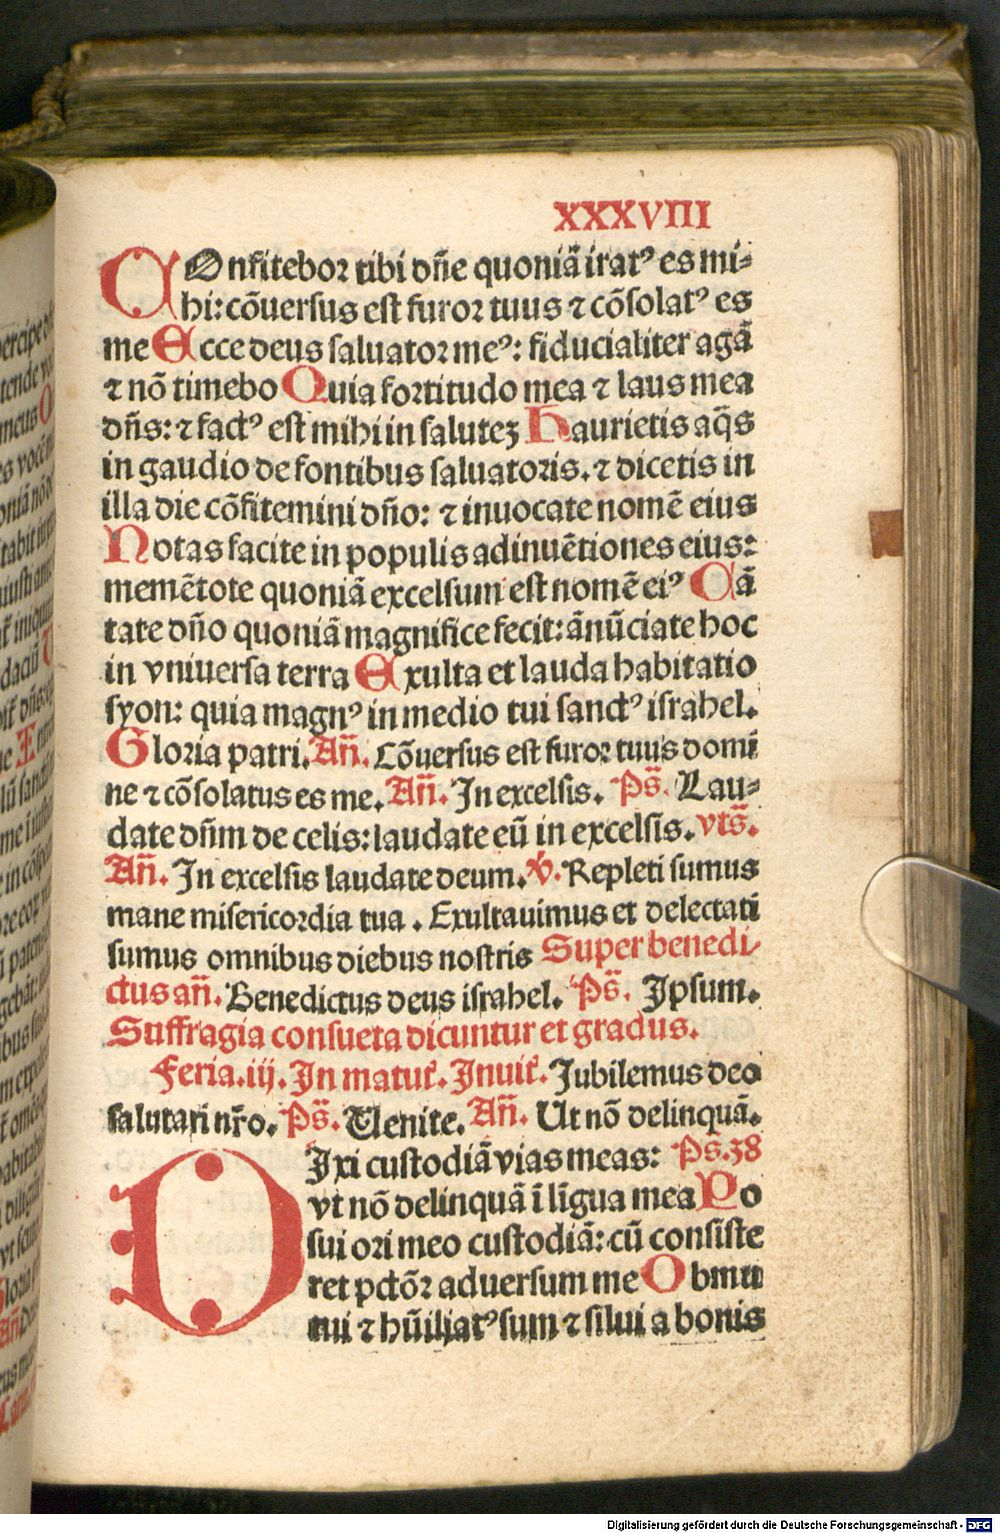 XXXVIII
COnfitebor tibi dñe quoniã irat⁹ es mi-
hi: cõuersus est furor tuus ⁊ cõsolat⁹ es
me Ecce deus saluator me⁹: fiducialiter agã
⁊ nõ timebo Quia fortitudo mea ⁊ laus mea
dñs: ⁊ fact⁹ est mihi in salutez Haurietis aq̃s
in gaudio de fontibus saluatoris. ⁊ dicetis in
illa die cõfitemini dño: ⁊ inuocate nomẽ eius
Notas facite in populis adinuẽtiones eius:
memẽtote quoniã excelsum est nomẽ ei⁹ Cã
tate dño quoniã magnifice fecit: ãnũciate hoc
in vniuersa terra Exulta et lauda habitatio
syon: quia magn⁹ in medio tui sanct⁹ israhel.
Gloria patri. Añ. Cõuersus est furor tuus domi
ne ⁊ cõsolatus es me. Añ. In excelsis. Ps̃. Lau-
date dñm de celis: laudate eũ in excelsis. vts̃.
Añ. In excelsis laudate deum. v̇. Repleti sumus
mane misericordia tua. Exultauimus et delectati
sumus omnibus diebus nostris Super benedi/
ctus añ. Benedictus deus israhel. Ps̃. Ipsum.
Suffragia consueta dicuntur et gradus.
Feria.iij. In matut̃. Inuit̃. Jubilemus deo
salutari nr̃o. Ps̃. Uenite. Añ. Ut nõ delinquã.
DIxi custodiã vias meas: Ps̃.38
vt nõ delinquã ĩ lĩgua mea Po
sui ori meo custodiã: cũ consiste
ret pctõr aduersum me Obmu
tui ⁊ hũiliat⁹ sum ⁊ silui a bonis
Digitalisierung gefördert durch die Deutsche Forschungsgemeinschaft - DFG